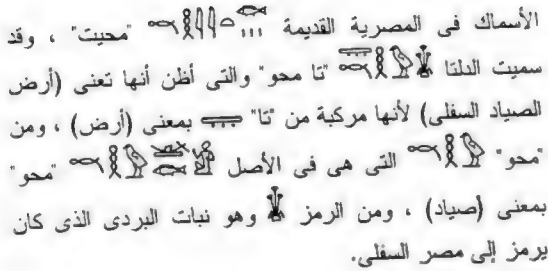 الأسماك فى المصرية القديمة "محيت" ، وقد
سميت الدلتا "تا محو" والتى أظن أنها تعنى (أرض
الصياد السفلى) لأنها مركبة من "تا" بمعنى (أرض) ، ومن
"محو" التى هى فى الأصل "محو"
بمعنى (صياد) ، ومن الرمز وهو نبات البردى الذى كان
يرمز إلى مصر السفلى.